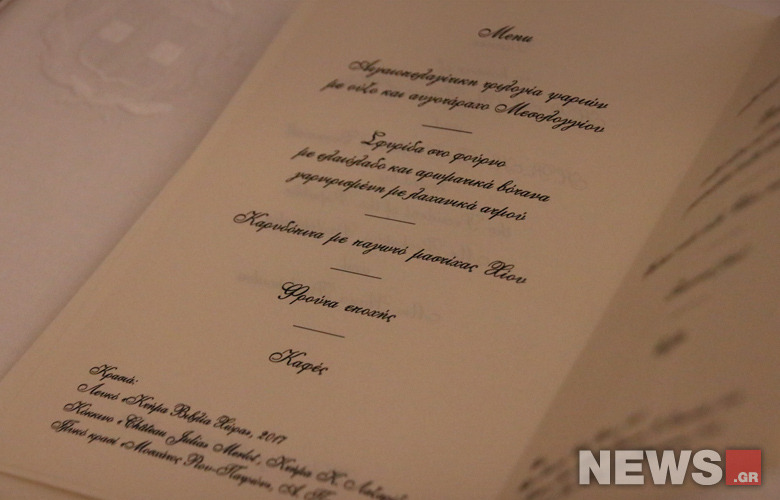 Menu
Αιγαιοπελαγίτικη τριλογία ψαριών
με ούζο και αυγοτάραχο Μεσολογγίου
Σφυρίδα στο φούρνο
με ελαιόλαδο και αρωματικά βότανα
γαρνιρισμένη με λαχανικά ατμού
Καρυδόπιτα με παγωτό μαστίχας Χίου
Φρούτα εποχής
Καφές
Κρασιά:
Λευκό «Κτήμα Βιβλία Χώρα», 2017
Κόκκινο «Château Julia» Merlot, Κτήμα Κ.
Γλυκό κρασί «Μοσχάτος Ρίου-Πατρών», Α.
NEWS.GR